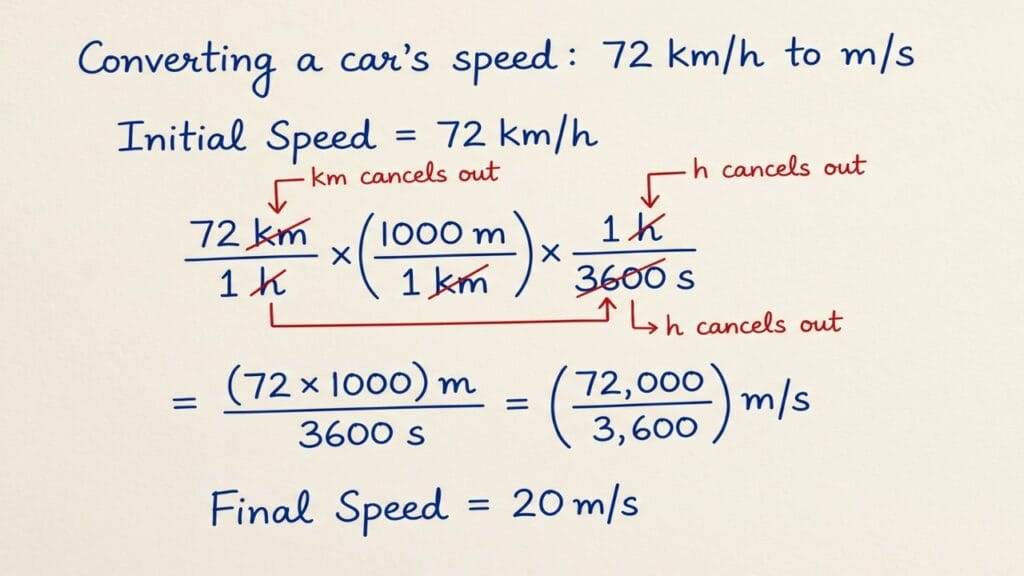 Converting a car's speed: 72 km/h to m/s
Initial Speed = 72 km/h
km cancels out
h cancels out
72 km / 1 h × (1000 m / 1 km) × 1 h / 3600 s
h cancels out
= (72 × 1000) m / 3600 s = (72,000 / 3,600) m/s
Final Speed = 20 m/s